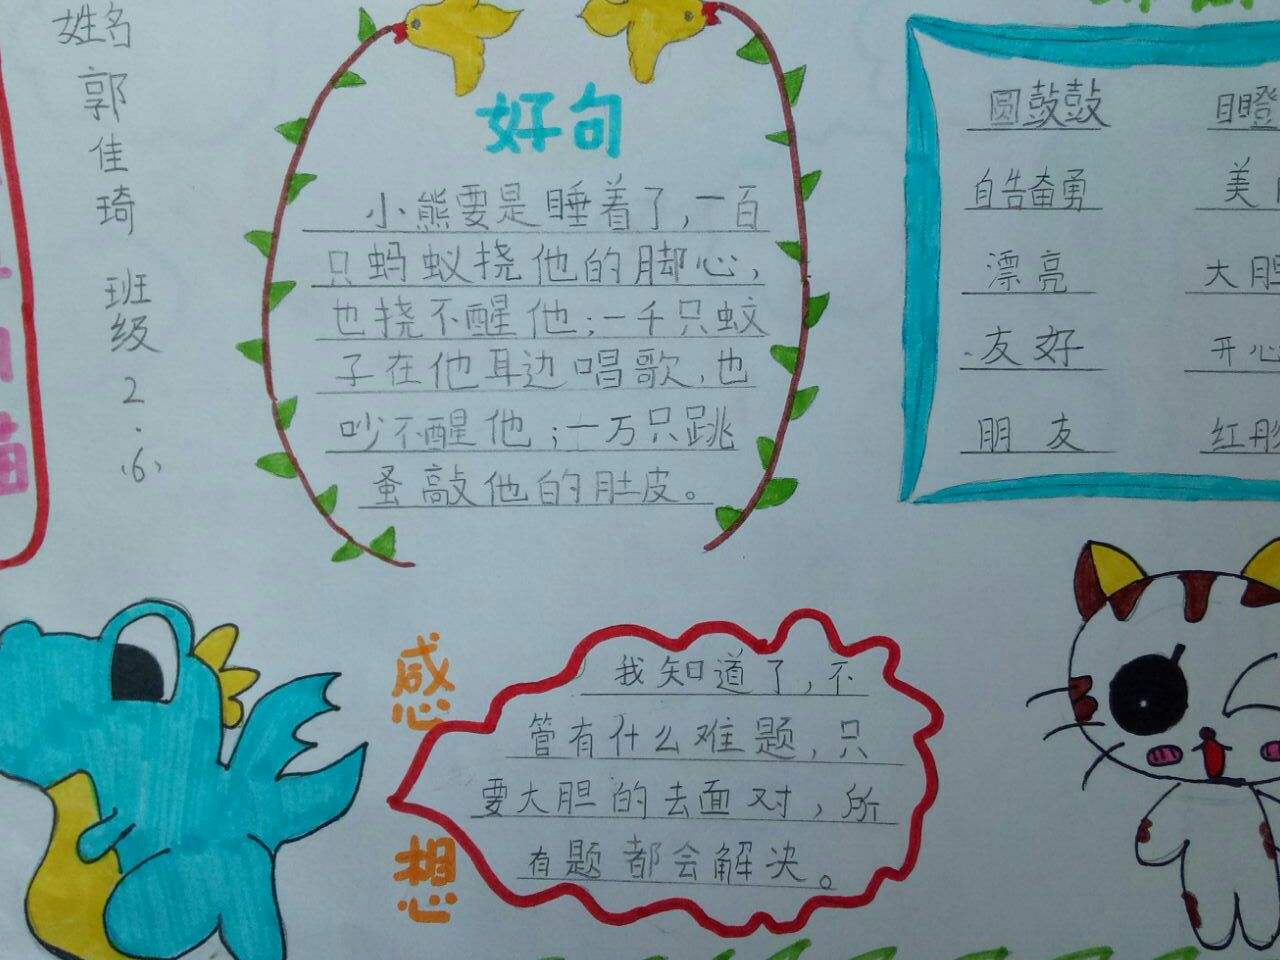 姓名
郭佳琦
班级
2.6
好句
小熊要是睡着了,一百
只蚂蚁挠他的脚心,
也挠不醒他;一千只蚊
子在他耳边唱歌,也
吵不醒他;一万只跳
蚤敲他的肚皮。
圆鼓鼓
自告奋勇
美
漂亮
大胆
友好
开心
朋友
红彤
感想
我知道了,不
管有什么难题,只
要大胆的去面对,所
有题都会解决。